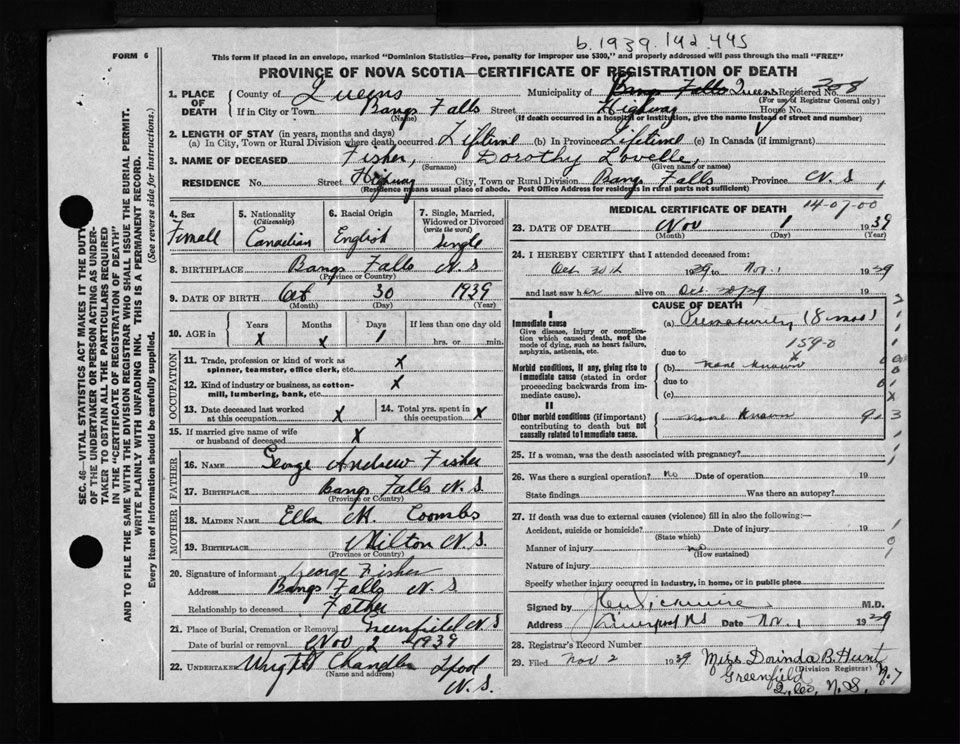 b.1939.142.445
FORM 6
This form if placed in an envelope, marked "Dominion Statistics—Free, penalty for improper use $300," and properly addressed will pass through the mail "FREE"
PROVINCE OF NOVA SCOTIA—CERTIFICATE OF REGISTRATION OF DEATH
SEC. 46- VITAL STATISTICS ACT MAKES IT THE DUTY
OF THE UNDERTAKER OR PERSON ACTING AS UNDER-
TAKER TO OBTAIN ALL THE PARTICULARS REQUIRED
IN THE "CERTIFICATE OF REGISTRATION OF DEATH"
AND TO FILE THE SAME WITH THE DIVISION REGISTRAR WHO SHALL ISSUE THE BURIAL PERMIT.
WRITE PLAINLY WITH UNFADING INK. THIS IS A PERMANENT RECORD.
Every item of information should be carefully supplied. (See reverse side for instructions.)
1. PLACE OF DEATH County of Queens Municipality of Bangs Falls Queens Registered No. 308
(For use of Registrar General only)
If in City or Town Bangs Falls Street Highway House No.
(Name) (If death occurred in a hospital or institution, give the name instead of street and number)
2. LENGTH OF STAY (in years, months and days)
(a) In City, Town or Rural Division where death occurred Lifetime (b) In Province Lifetime (c) In Canada (if immigrant)
3. NAME OF DECEASED Fisher, Dorothy Lovelle,
(Surname) (Given name or names)
RESIDENCE No. Street Highway City, Town or Rural Division Bangs Falls Province N.S.
(Residence means usual place of abode. Post Office Address for residents in rural parts not sufficient)
4. Sex Female
5. Nationality (Citizenship) Canadian
6. Racial Origin English
7. Single, Married, Widowed or Divorced (write the word) Single
8. BIRTHPLACE Bangs Falls N.S
(Province or Country)
9. DATE OF BIRTH Oct 30 1939
(Month) (Day) (Year)
10. AGE in Years X Months X Days 1 If less than one day old
hrs. or min.
OCCUPATION
11. Trade, profession or kind of work as spinner, teamster, office clerk, etc. X
12. Kind of industry or business, as cotton-mill, lumbering, bank, etc. X
13. Date deceased last worked at this occupation X
14. Total yrs. spent in this occupation X
15. If married give name of wife or husband of deceased X
FATHER
16. NAME George Andrew Fisher
17. BIRTHPLACE Bangs Falls N.S.
(Province or Country)
MOTHER
18. MAIDEN NAME Ella M. Coombs
19. BIRTHPLACE Milton N.S.
(Province or Country)
20. Signature of informant George Fisher
Address Bangs Falls N.S
Relationship to deceased Father
21. Place of Burial, Cremation or Removal Greenfield N.S
Date of burial or removal Nov 2 1939
22. UNDERTAKER Wright Chandler Lpool
(Name and address)
N.S.
MEDICAL CERTIFICATE OF DEATH 14-07-00
23. DATE OF DEATH Nov 1 1939
(Month) (Day) (Year)
24. I HEREBY CERTIFY that I attended deceased from:
Oct 30th 1939 to Nov. 1 1939
and last saw her alive on Oct. 19
CAUSE OF DEATH
I
Immediate cause
Give disease, injury or complication which caused death, not the mode of dying, such as heart failure, asphyxia, asthenia, etc.
(a) Prematurity (8 mos)
159-0
due to
Morbid conditions, if any, giving rise to immediate cause (stated in order proceeding backwards from immediate cause).
(b) none known
due to
(c)
II
Other morbid conditions (if important) contributing to death but not causally related to immediate cause.
none known
25. If a woman, was the death associated with pregnancy?
26. Was there a surgical operation? no Date of operation 19
State findings Was there an autopsy?
27. If death was due to external causes (violence) fill in also the following:—
Accident, suicide or homicide? Date of injury 19
(State which)
Manner of injury no
(How sustained)
Nature of injury
Specify whether injury occurred in industry, in home, or in public place
Signed by M.D.
Address Liverpool NS Date Nov. 1 1939
28. Registrar's Record Number
29. Filed Nov 2 1939 Miss Dorinda B. Hunt
(Division Registrar)
Greenfield
Q. Co, N.S.